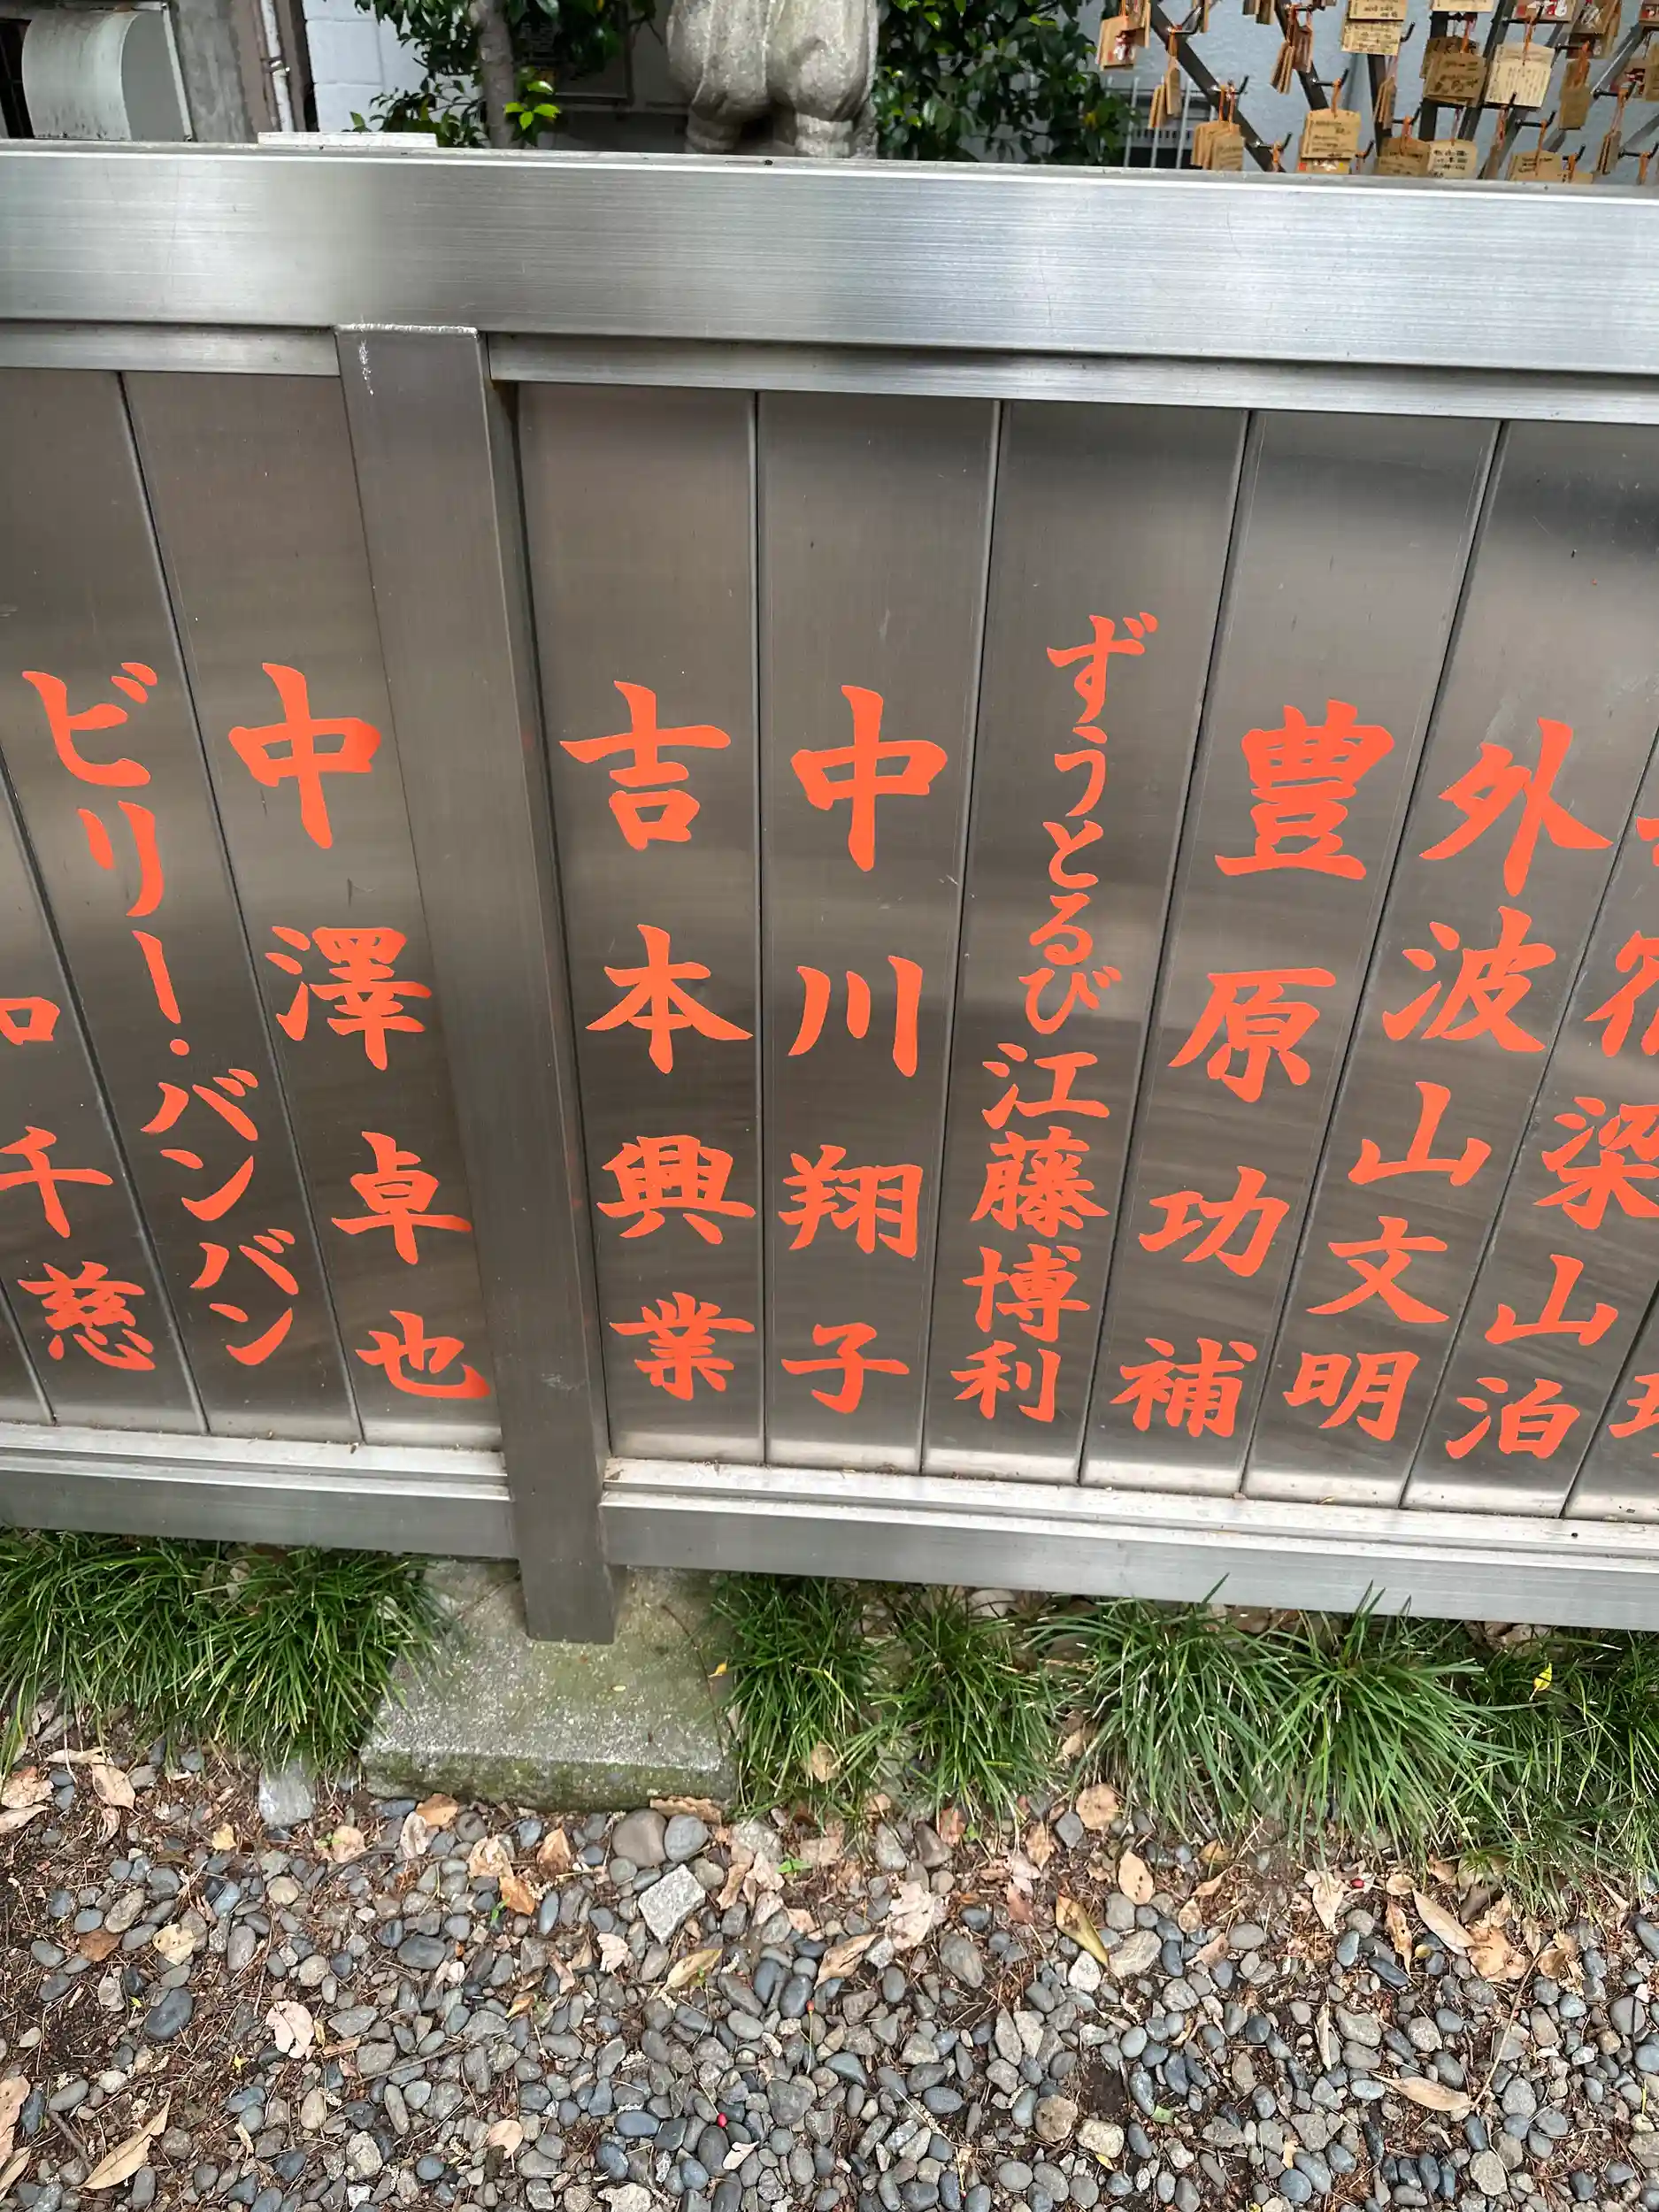 梁山泊
外波山文明
豊原功補
ずうとるび江藤博利
中川翔子
吉本興業
中澤卓也
ビリー・バンバン
千慈